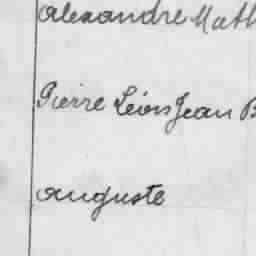 Alexandre Math
Pierre Léon Jean B
Auguste